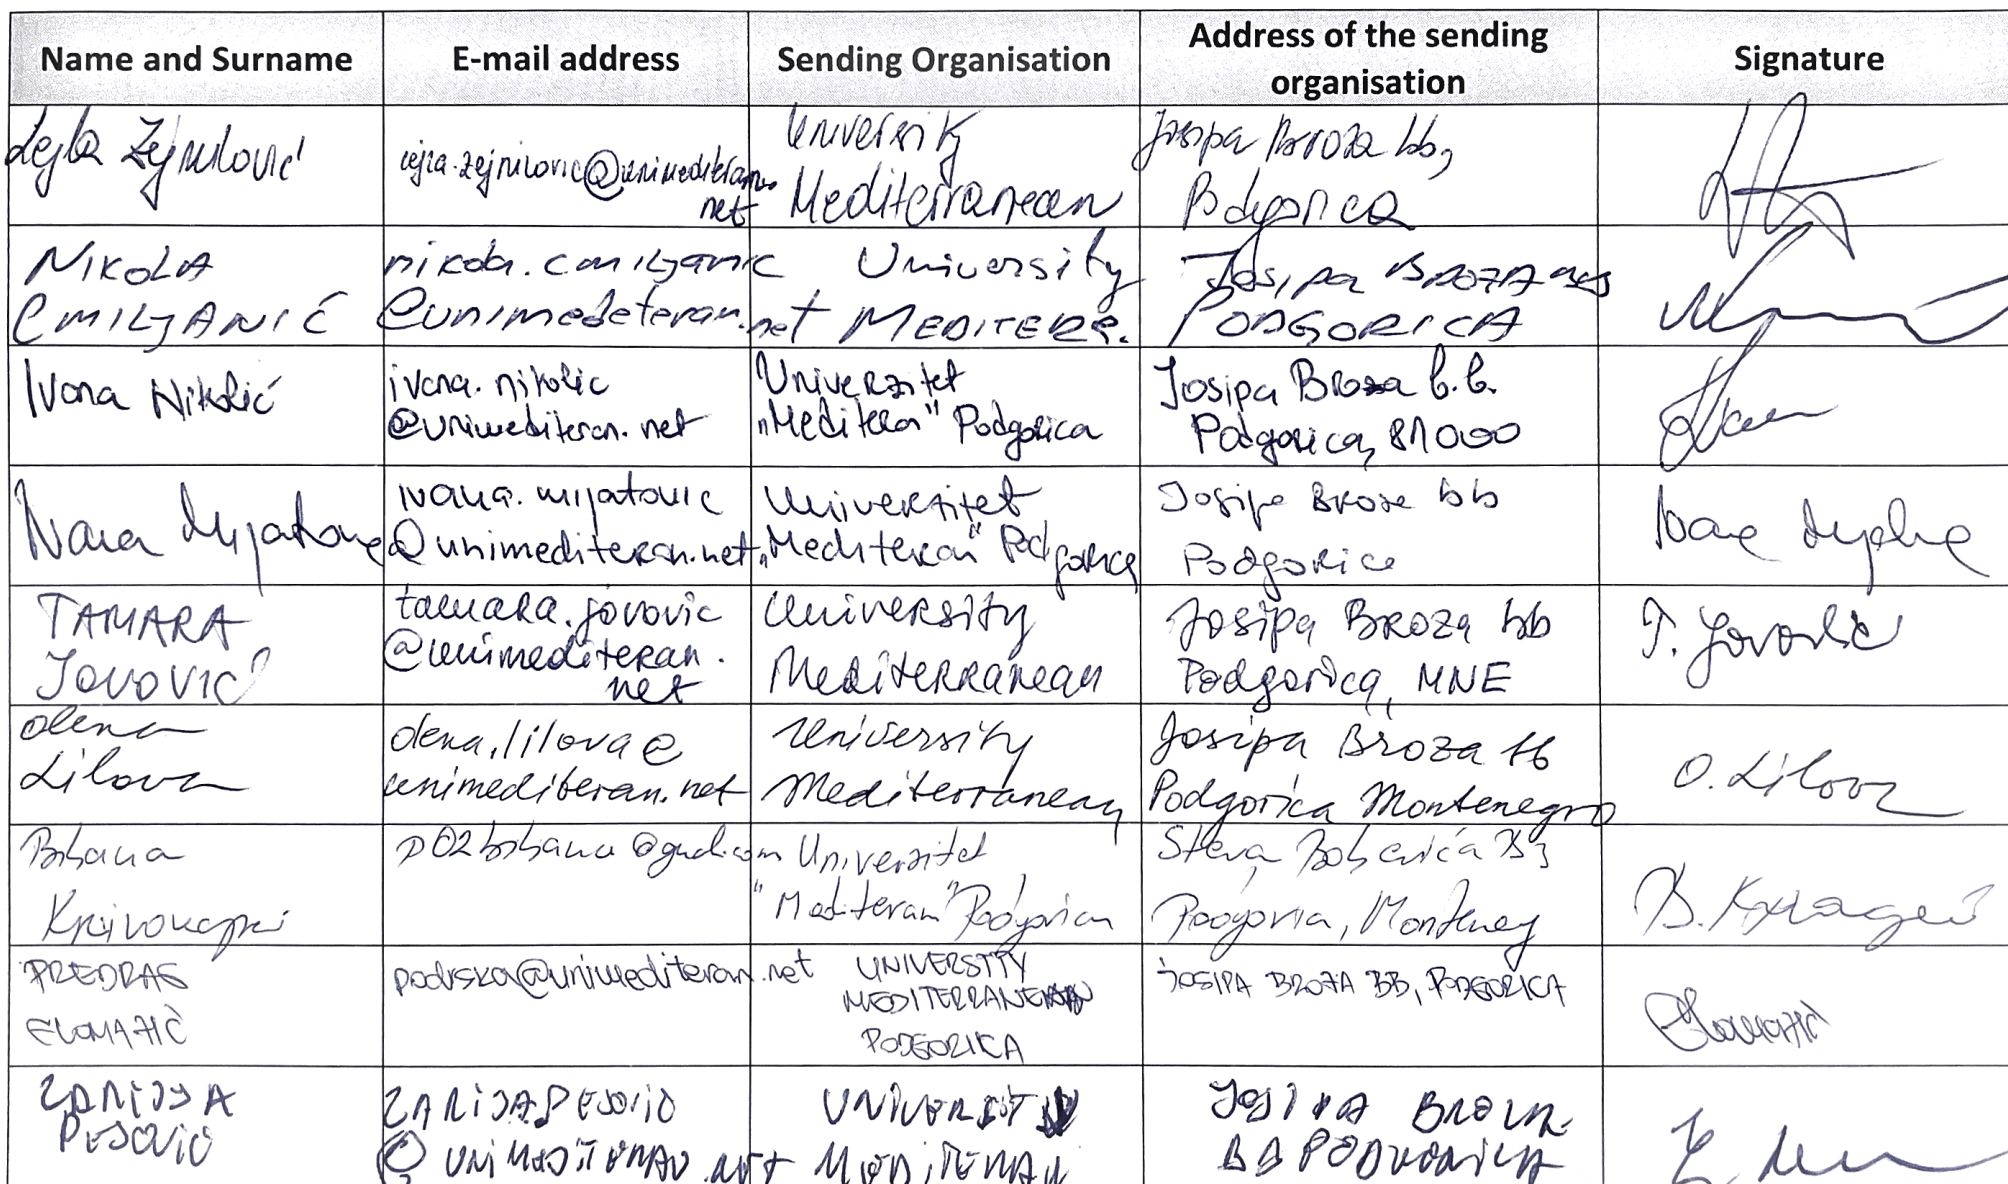 Name and Surname
E-mail address
Sending Organisation
Address of the sending
organisation
Signature
Lejla Zejnilović
lejla.zejnilovic@unimediteran.
net
University
Mediterranean
Josipa Broza bb,
Podgorica
NIKOLA
CMILJANIĆ
nikola.cmiljanic
@unimedeteran.net
University
MEDITERR.
Josipa BROZA
PODGORICA
Ivana Nikolić
ivana.nikolic
@unimediteran.net
Univerzitet
„Mediteran" Podgorica
Josipa Broza b.b.
Podgorica, 81000
Ivana Mijatović
ivana.mijatovic
@unimediteran.net
Univerzitet
„Mediteran" Podgorica
Josipa Broza bb
Podgorica
TAMARA
JOVOVIĆ
tamara.jovovic
@unimediteran.
net
University
Mediterranean
Josipa Broza bb
Podgorica, MNE
T. Jovović
Olena
Lilova
olena.lilova@
unimediteran.net
University
Mediterranean
Josipa Broza bb
Podgorica Montenegro
O. Lilova
Univerzitet
"Mediteran" Podgorica
PREDRAG
podrska@unimediteran.net
UNIVERSITY
MEDITERRANEAN
PODGORICA
JOSIPA BROZA BB, PODGORICA
ZARIJA
PEJOVIĆ
ZARIJA.PEJOVIC
@UNIMEDITERAN.NET
UNIVERSITY
MEDITERAN
JOSIPA BROZA
BB PODGORICA